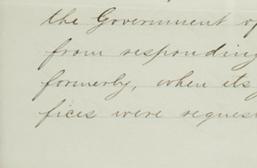 the Government of
from responding
formerly, when its
fices were reques